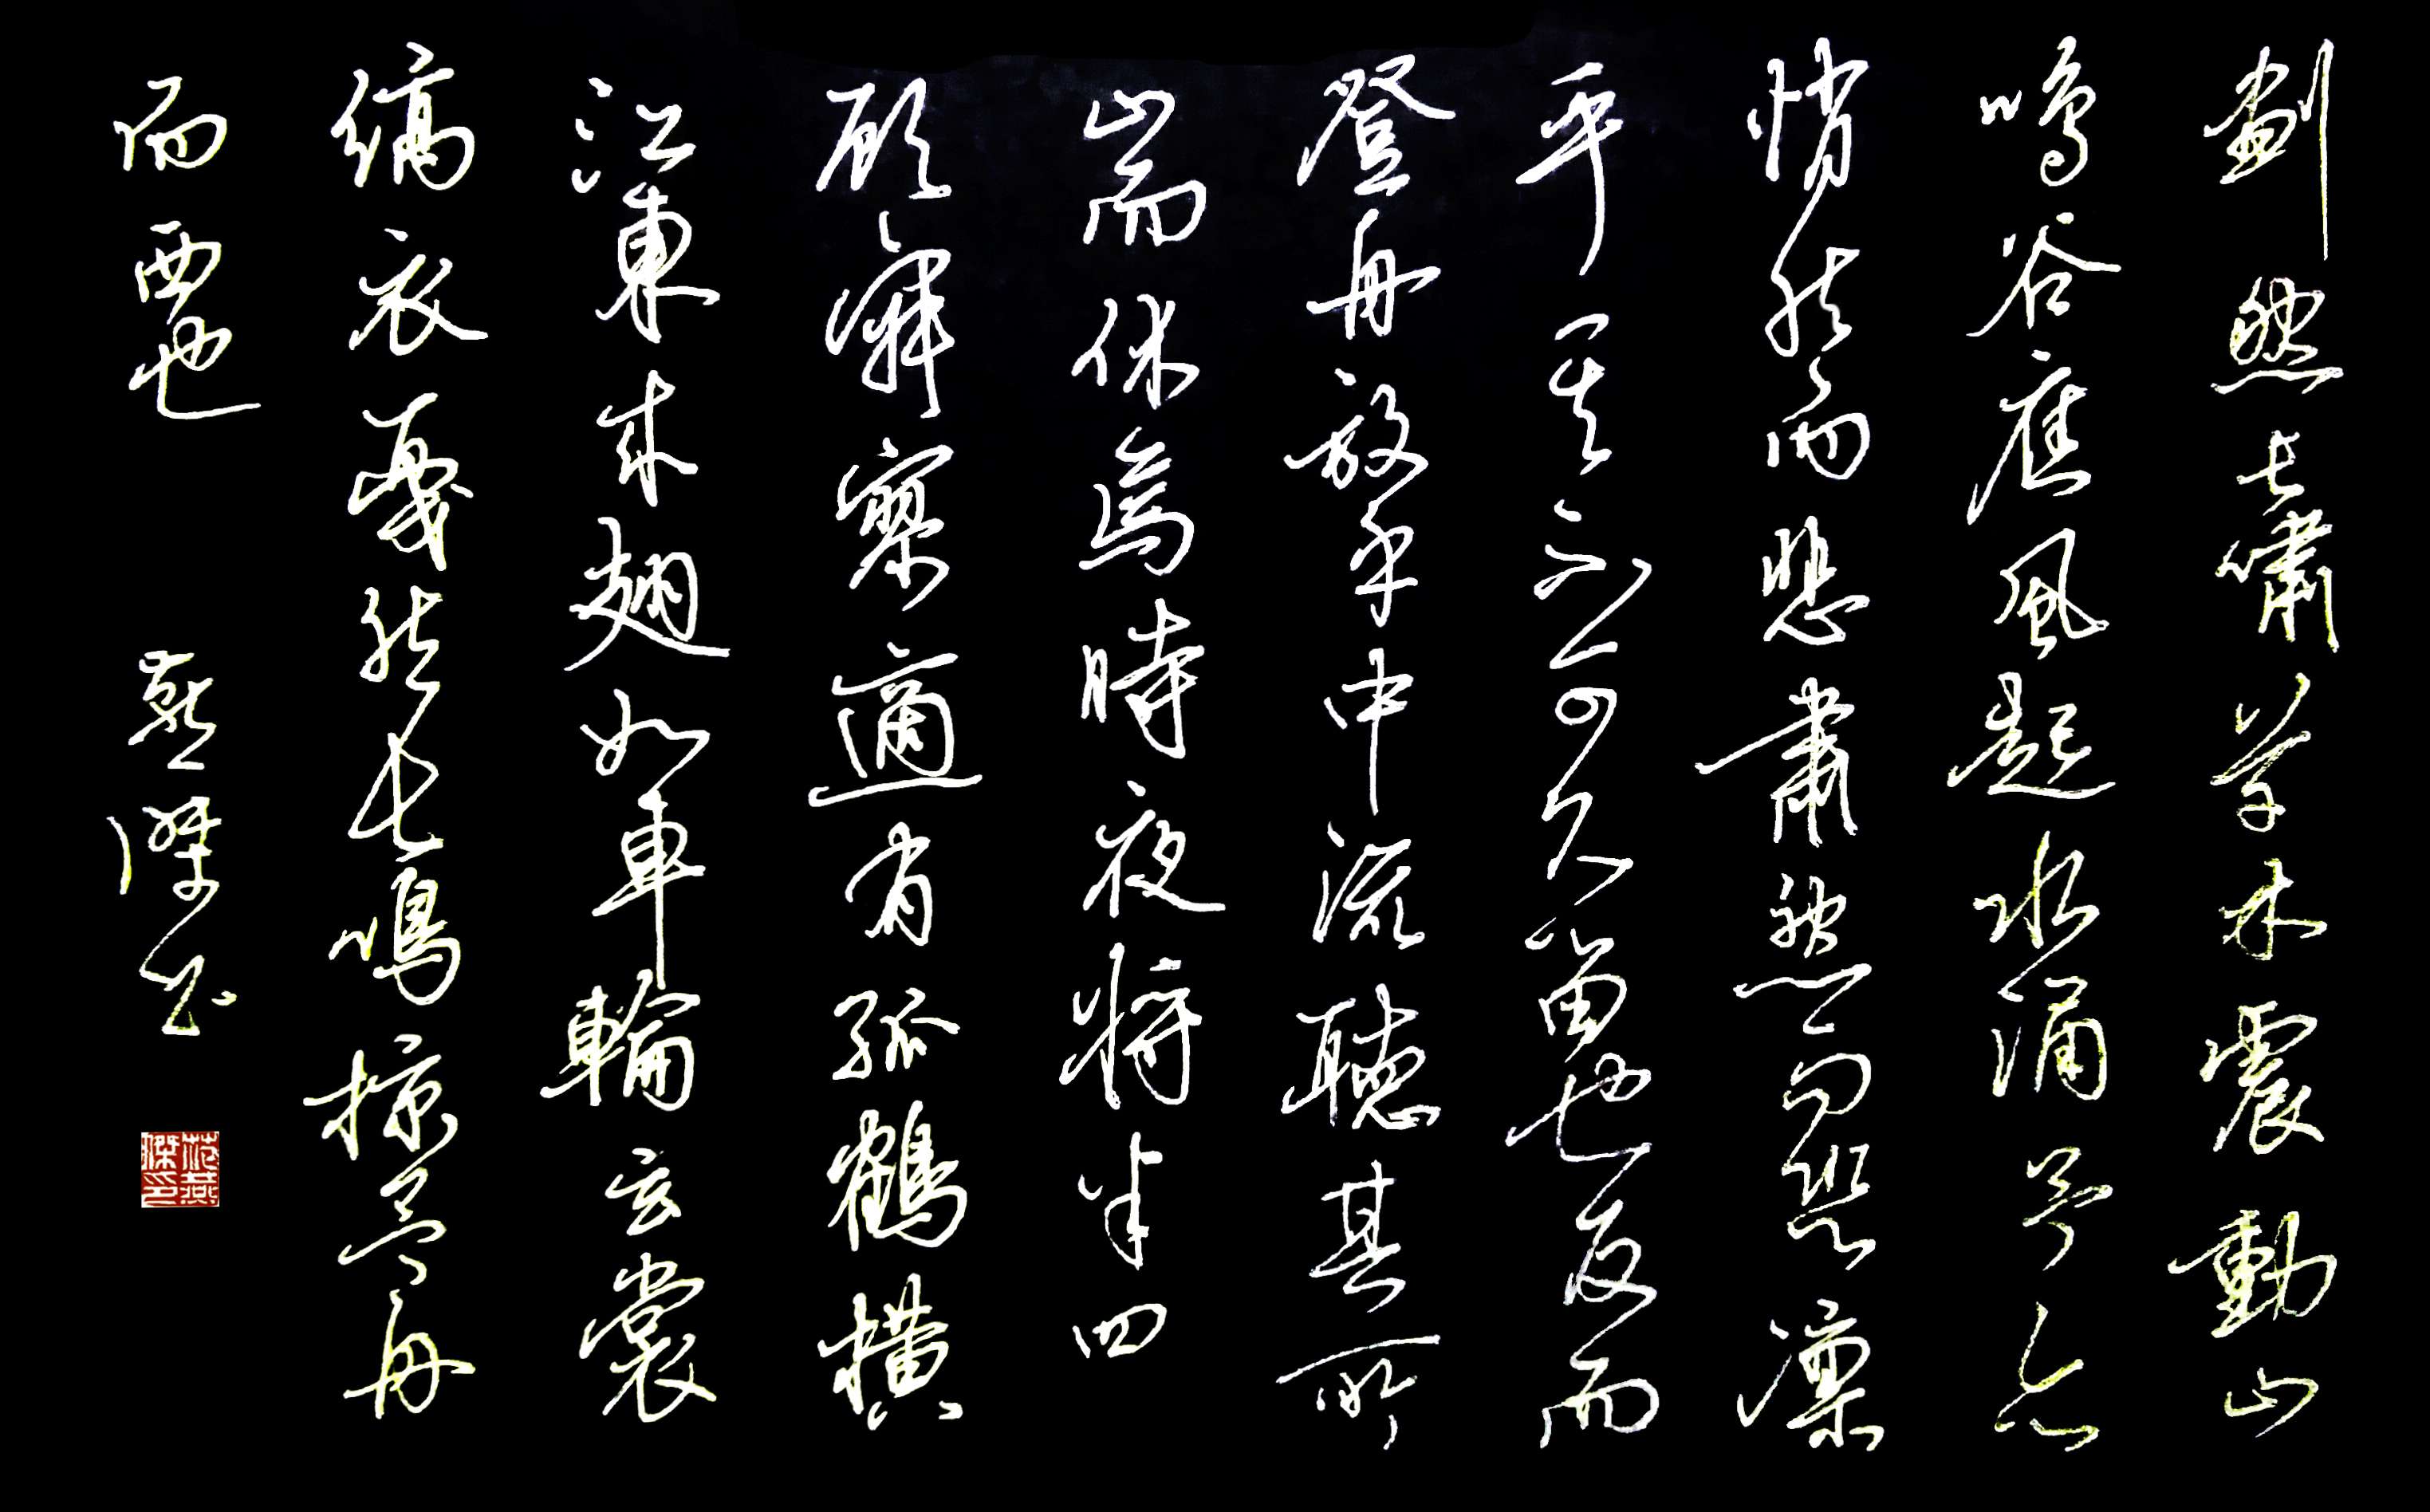 劃然長嘯草木震動山
鳴谷應風起水涌予亦
悄然而悲肅然而恐凜
乎其不可久留也反而
登舟放乎中流聽其所
止而休焉時夜將半四
顧寂寥適有孤鶴橫
江東來翅如車輪玄裳
縞衣戛然長鳴掠予舟
而西也 燕傑書
范燕傑印